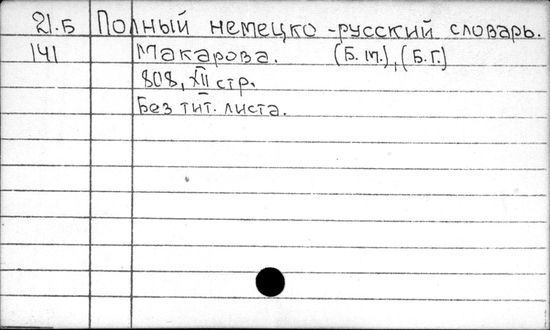 21.Б Полный немецко-русский словарь.
141 Макарова. (Б.м.), (Б.Г.)
808, XII стр.
Без тит. листа.